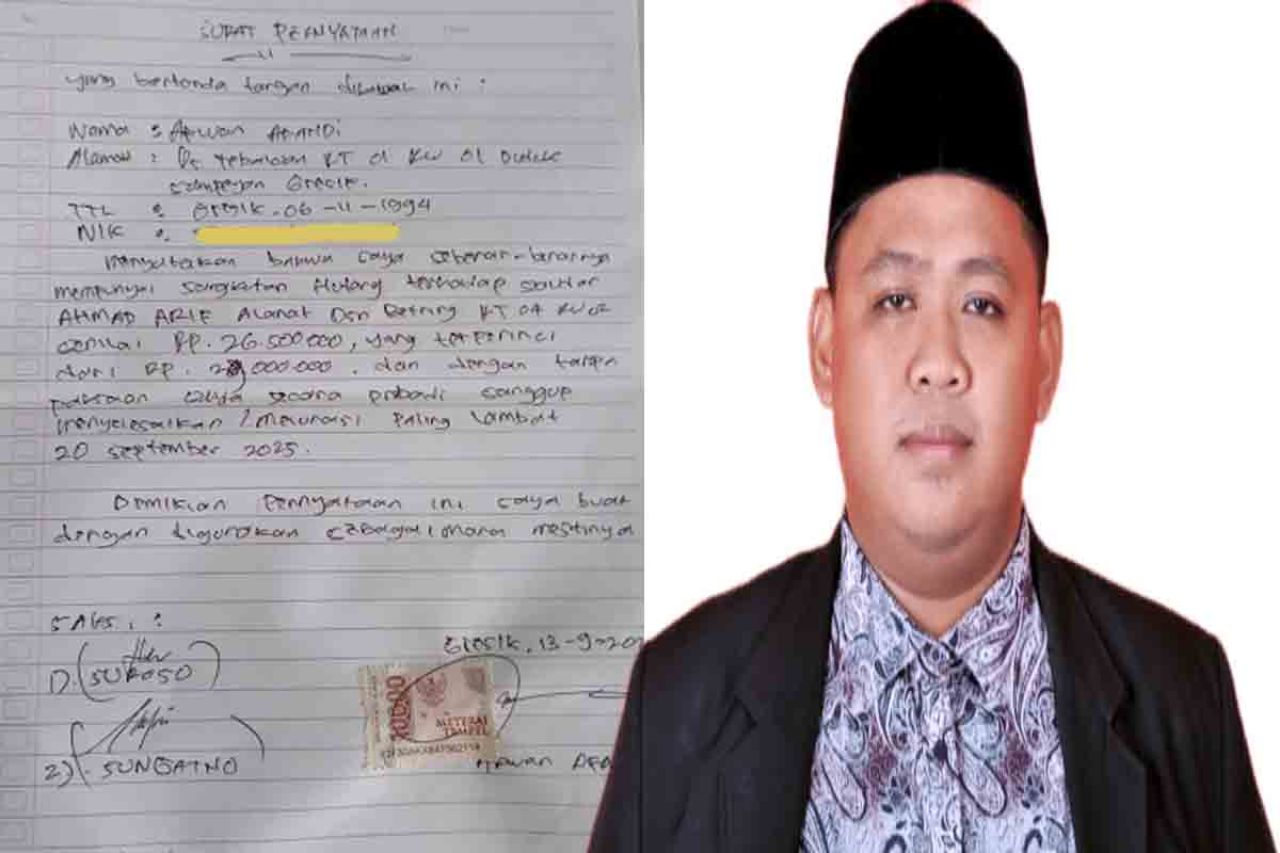 SURAT PERNYATAAN
yang bertanda tangan dibawah ini :
Nama : Arwan AFANDi
Alamat : Ds Tebuwung RT 01 RW 01 Dukun
Gresik.
TTL : Gresik, 06 - 11 - 1994
NIK :
Menyatakan bahwa saya sebenar-benarnya
mempunyai sangkutan Hutang terhadap saudar
AHMAD ARIF Alamat Dsn Betring RT 04 RW 02
senilai RP. 26.500.000, yang terperinci
dari RP. 000.000. dan dengan tanpa
paksaan saya secara pribadi sanggup
menyelesaikan / melunasi Paling lambat
20 September 2025.
Demikian Pernyataan ini saya buat
dengan digunakan sebagai mana mestinya
SAKSI :
1). (SUKOSO)
Gresik, 13-9-20
10000
METERAI
TEMPEL
2) (SUNGATNO
Arwan AFA